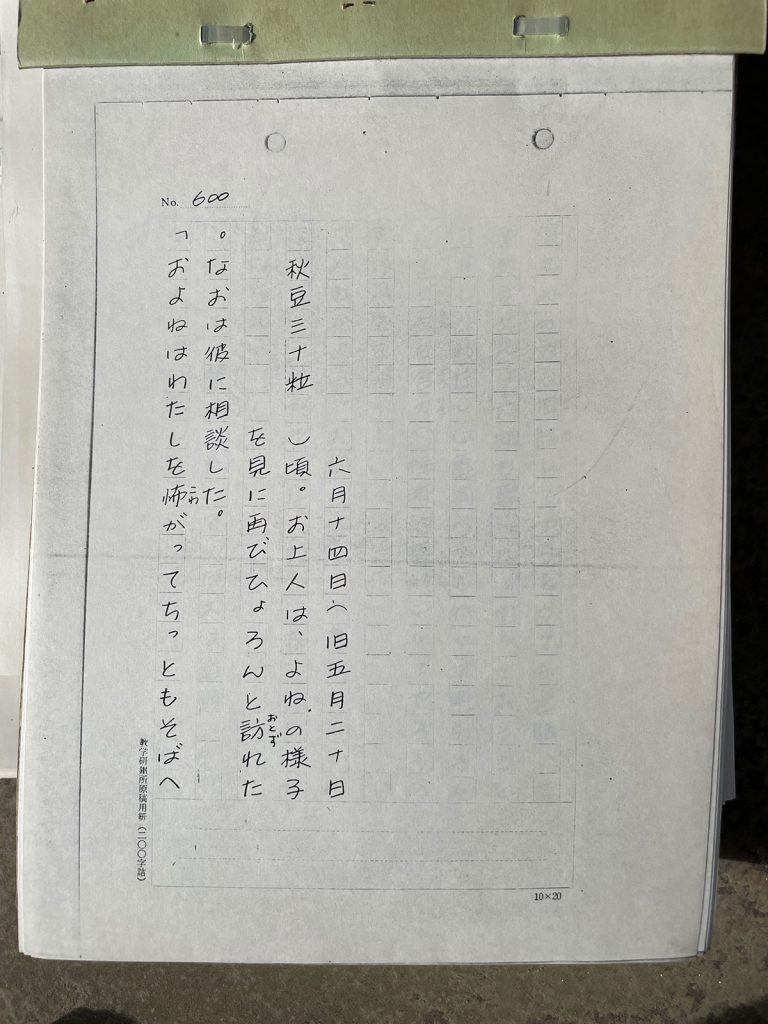 No. 600
六月十四日(旧五月二十日
秋豆三十粒
)頃。お上人は、よねの様子
を見に再びひょろんと訪れた
おとず
。なおは彼に相談した。
「およねはわたしを怖がってちっともそばへ
こわ
教学研鑽所原稿用紙(二〇〇字詰)
10×20